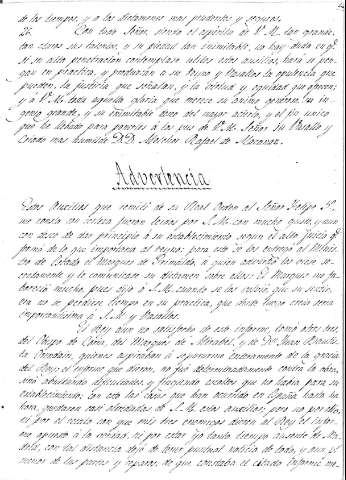 de los tiempos, y a los dictamenes mas prudentes y seguros.
26. Con todo Señor, siendo el espiritu de V.M. tan grande,
tan claros sus talentos, y su piedad tan inimitable, no hay duda es qe
si su alta penetracion contemplase utiles estos auxilios, hará se pon-
gan en practica, y producirán a su Reyno y Vasallos la opulencia que
pueden, la justicia que señalan, y la virtud y equidad que ofrecen;
y a V.M. toda aquella gloria que merece su animo generoso, su in-
genio grande, y su inimitable amor del mayor acierto, y el fin unico
que he llevado para ponerlos a los pies de V.M. Señor su Vasallo y
Criado mas humilde D.D. Melchor Rafael de Macanaz.
Advertencia
Estos Auxilios que remití de su Real Orden al Señor Felipe 5º
me consta con certeza fueron leidos por S.M. con mucho gusto, y aun
con deseo de dar principio a su establecimiento segun el alto juicio qe
formó de lo que importaria al reyno; para esto se los entregó al Minis-
tro de Estado el Marques de Grimaldo, a quien advirtió los viese se-
cretamente, y le comunicase su dictamen sobre ellos: El Marques me fa-
voreció mucho, pues dijo a S.M. cuando se los volvió, que su
no se perdiese tiempo en su practica, que desde luego sería
importantisima a S.M. y Vasallos.
El Rey aun no satisfecho de este informe, tomó otros tres,
del Obispo de, del Marques de Mirabel, y de Dn Juan Bautis-
ta, quienes aspiraban a separarme enteramente de la gracia
del Rey: el informe que dieron, no fue determinadamente contra la obra,
sino abultando dificultades y fingiendo excesos que no habia para su
establecimiento: con esto las cosas que han ocurrido en España hasta la
hora, quedaron casi olvidados de S.M. estos auxilios; pero no por ellos,
ni por el recelo con que mis tres enemigos dieron al Rey el infor-
me opuesto a la verdad, ni por estar yo tanto tiempo ausente de Ma-
drid, con tal distancia dejó de tener puntual noticia de todo, y aun el
menos de las partes y reparos de que constaba el citado Informe no